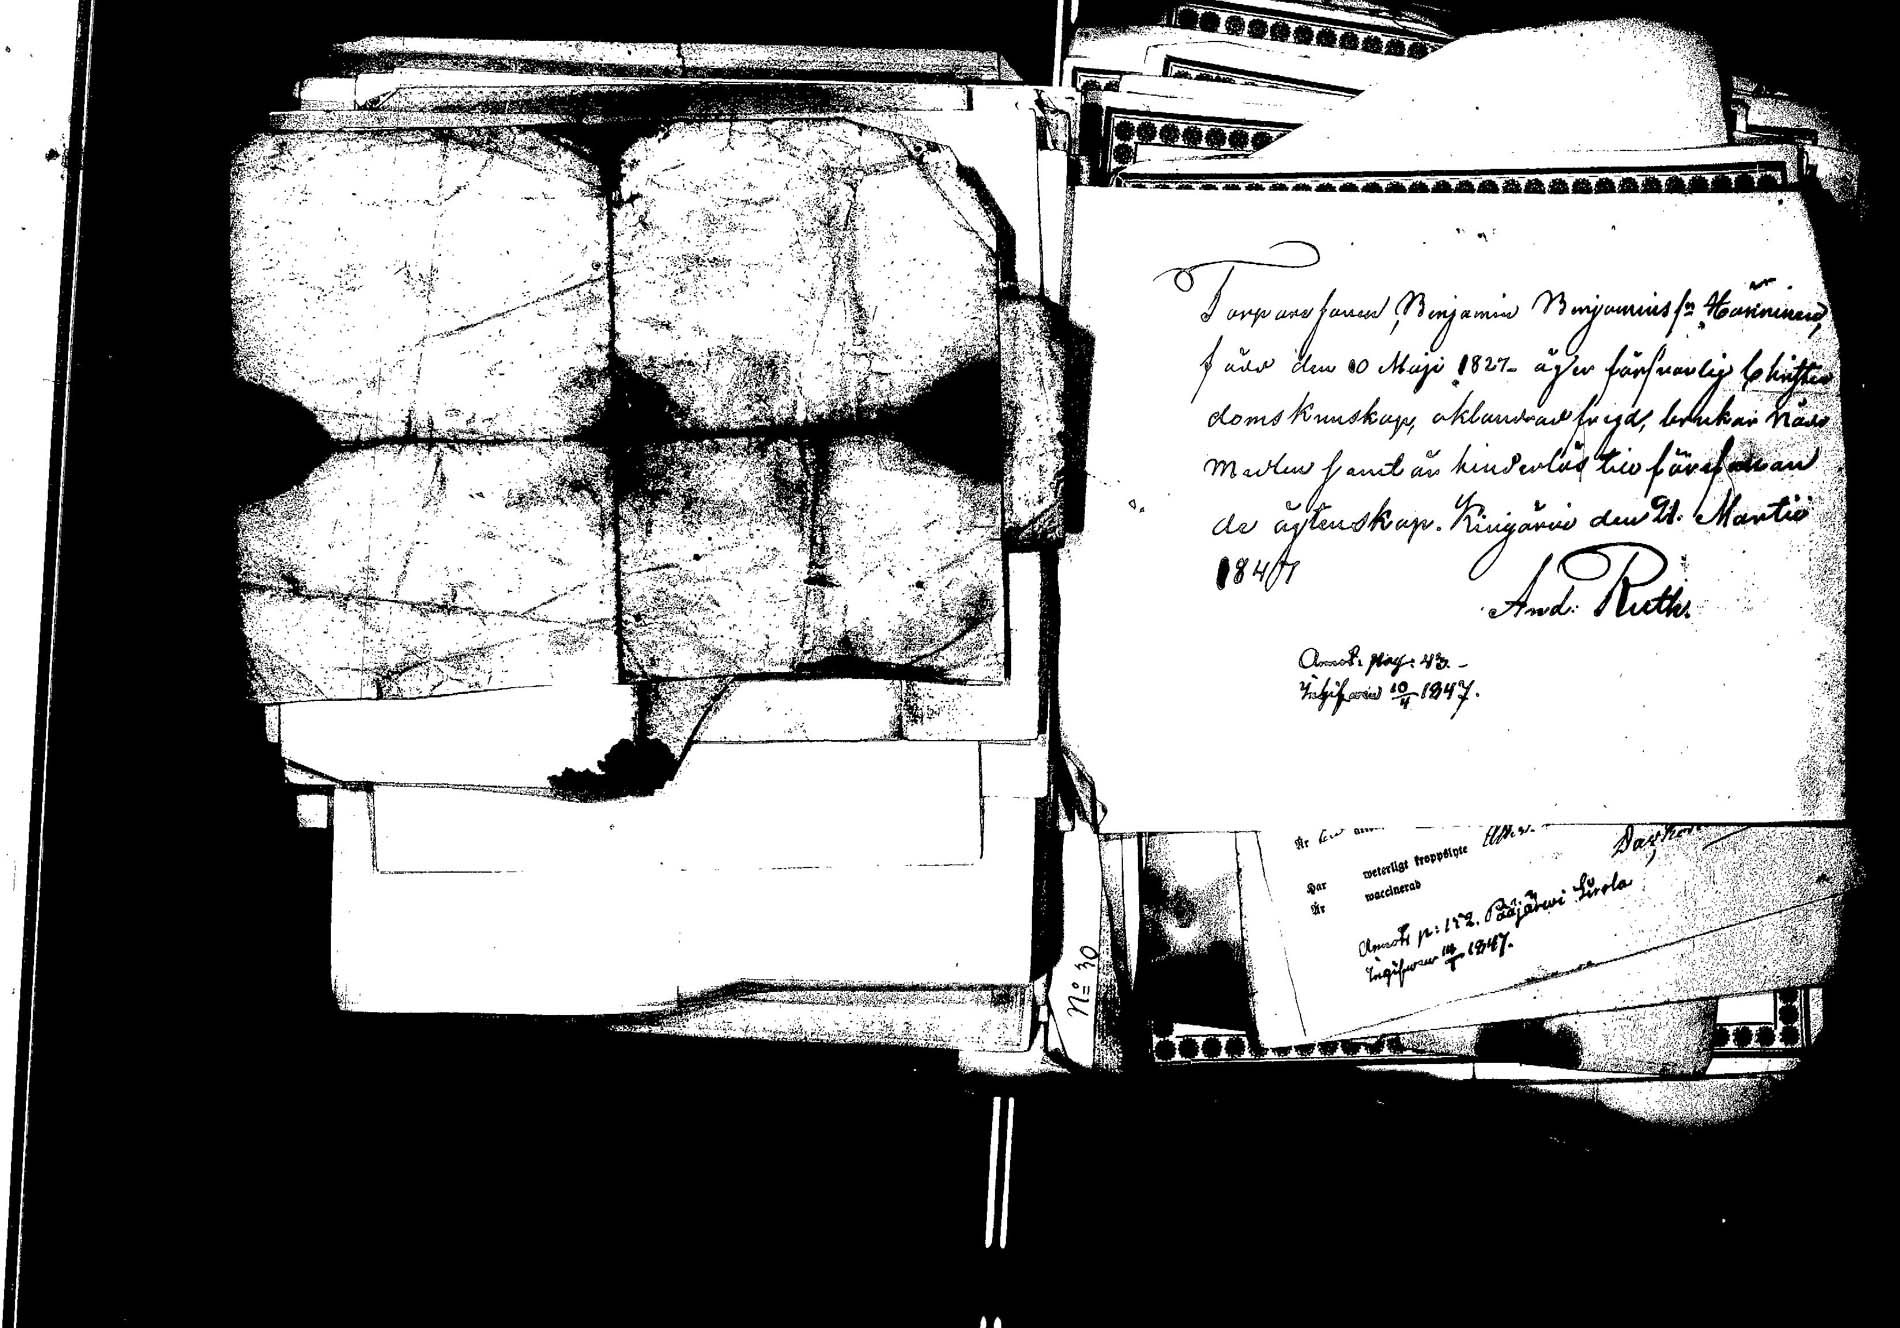 Torparesonen Benjamin Benjaminss:n Hänninen,
född den 10 Maji 1827 äger försvarlig Christen
doms kunskap, oklandrad frejd, brukar Natt
warden samt är hinderlös till förestaan
de ägtenskap. Kivijärvi den 21. Martii
1847
And: Ruth.
Annot: pag: 43. –
Ingifven 10/4 1847.
Är
Har weterligt kroppslyte
Är waccinerad
Annot: p: 152. Pääjärvi Sirola
Ingifven 1847.
N:o 30